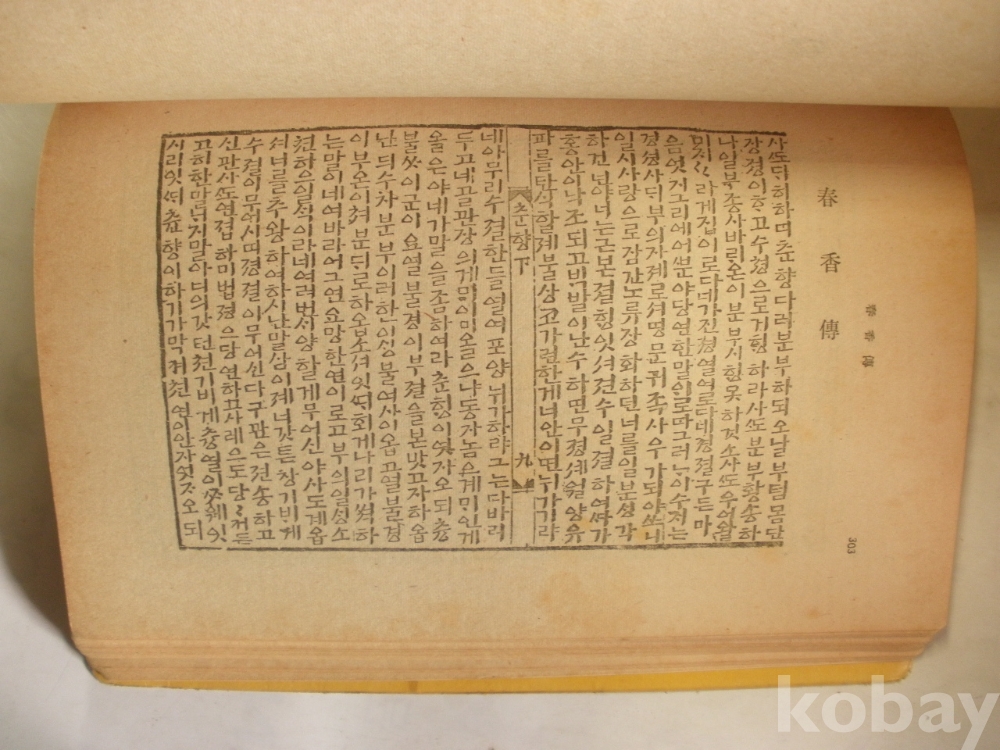 春香傳
303
사ᄯᅩ 다히하며 츈향다려 분부하되 오날부텀 몸단
장 졍이 하고 수쳥으로 거ᄒᆡᆼ하라 사ᄯᅩ 분부 황송하
나 일부종사 바ᄅᆡ온이 분부시ᄒᆡᆼ 못하것소 사ᄯᅩ 우어 왈
미ᄌᆡ〻〻라 계집이로다 네가 진졍 열여로다 네 졍졀 구든 마
음 엇지 그리 에ᄲᅮᆫ야 당연한 말이로다 그러나 이수ᄌᆡ는
경셩 사ᄃᆡ부의 자졔로셔 명문귀족 사우가 되야ᄯᅳ니
일시 사랑으로 잠간 노류장화하던 너를 일분 ᄉᆡᆼ각
하건넌야 너는 근본 졀ᄒᆡᆼ 잇셔 젼수일졀하여ᄯᅡ가
홍안이 낙조되고 ᄇᆡᆨ발이 난수하면 무졍셰월양유
파를 탄식할 졔 불상코 가련한 게 너 안이면 뉘가 기랴
춘향下 九
네 아무리 수졀한들 열여 포양 뉘가 하랴 그는 다 바려
두고 네 골 관장의게 ᄆᆡ이미 올으냐 동자놈으게 ᄆᆡ인 게
올은야 네가 말을 좀 하여라 춘향이 엿자오되 충
불사이군이요 열불경이부졀을 본밧고자 하옵
난듸 수차 분부 이러한이 ᄉᆡᆼ불여사이옵고 열불경
이부온이 쳐분ᄃᆡ로 하옵소셔 잇ᄯᆡ 회계나리가 ᄶᅥᆨ 하
는 말이 네 여바라 어 그연 요망한 연이로고 부의일ᄉᆡᆼ소
쳔하의 일ᄉᆡᆨ이라 네 여러번 사양할 게 무어신야 사ᄯᅩ계옵
셔 너를 추왕하여 하시난 말삼이졔 너 갓튼 창기ᄇᆡ게
수졀이 무어시며 졍졀이 무어신다 구관은 젼송하고
신관사ᄯᅩ 연졉하미 법젼으 당연하고 사례으도 당〻커든
고히한 말 ᄂᆡ지 말아 너의 갓턴 쳔기ᄇᆡ게 충열이ᄶᆞ 웨 잇
시리 잇ᄯᆡ 춘향이 하 기가 막켜 쳔연이 안자 엿자오되
kobay